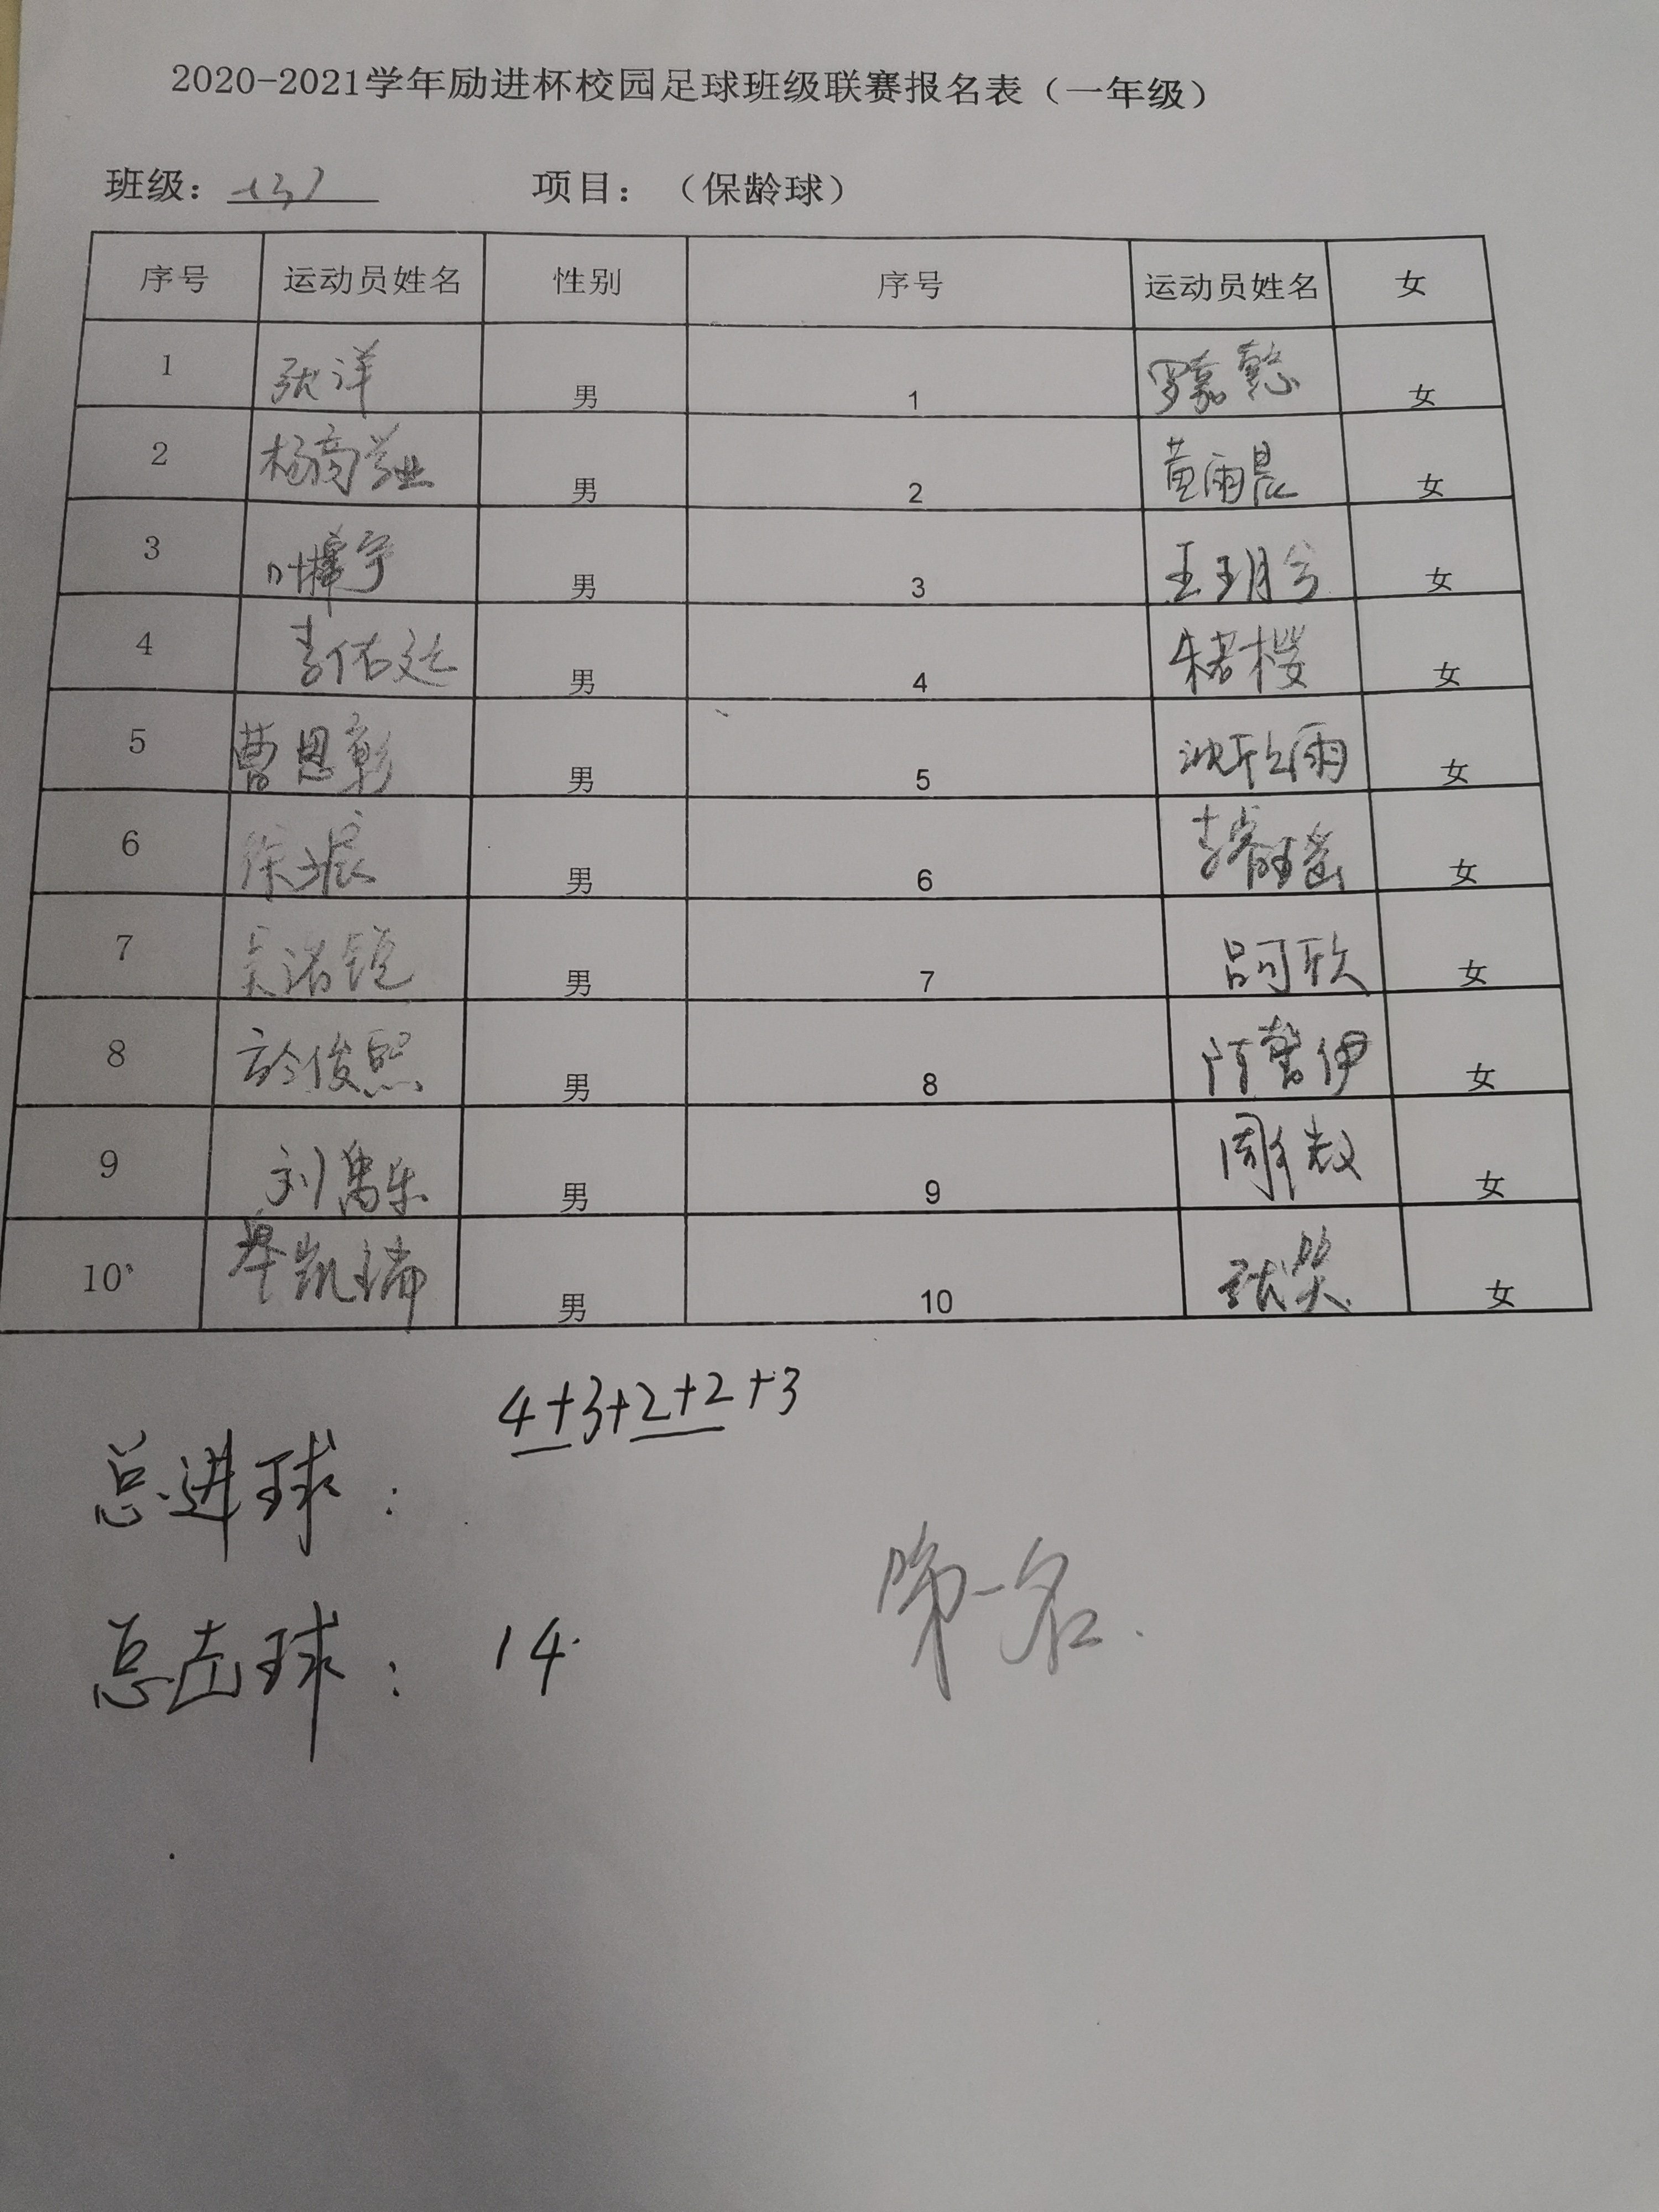 2020-2021学年励进杯校园足球班级联赛报名表（一年级）
班级： 一（3） 项目：（保龄球）
序号 运动员姓名 性别 序号 运动员姓名 女
1 张洋 男 1 罗嘉 女
2 杨商业 男 2 黄雨晨 女
3 叶宇 男 3 王玥兮 女
4 李佑廷 男 4 朱若樱 女
5 曹恩彰 男 5 沈欣雨 女
6 徐 男 6 李睿瑶 女
7 吴诺铠 男 7 吕可欣 女
8 於俊熙 男 8 隋馨伊 女
9 刘禹乐 男 9 周 女
10 凯瑞 男 10 张笑 女
4+3+2+2+3
总进球：
总击球： 14
第一名.